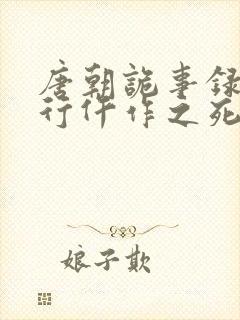 唐朝詭事録
行仵作之死
娘子欺